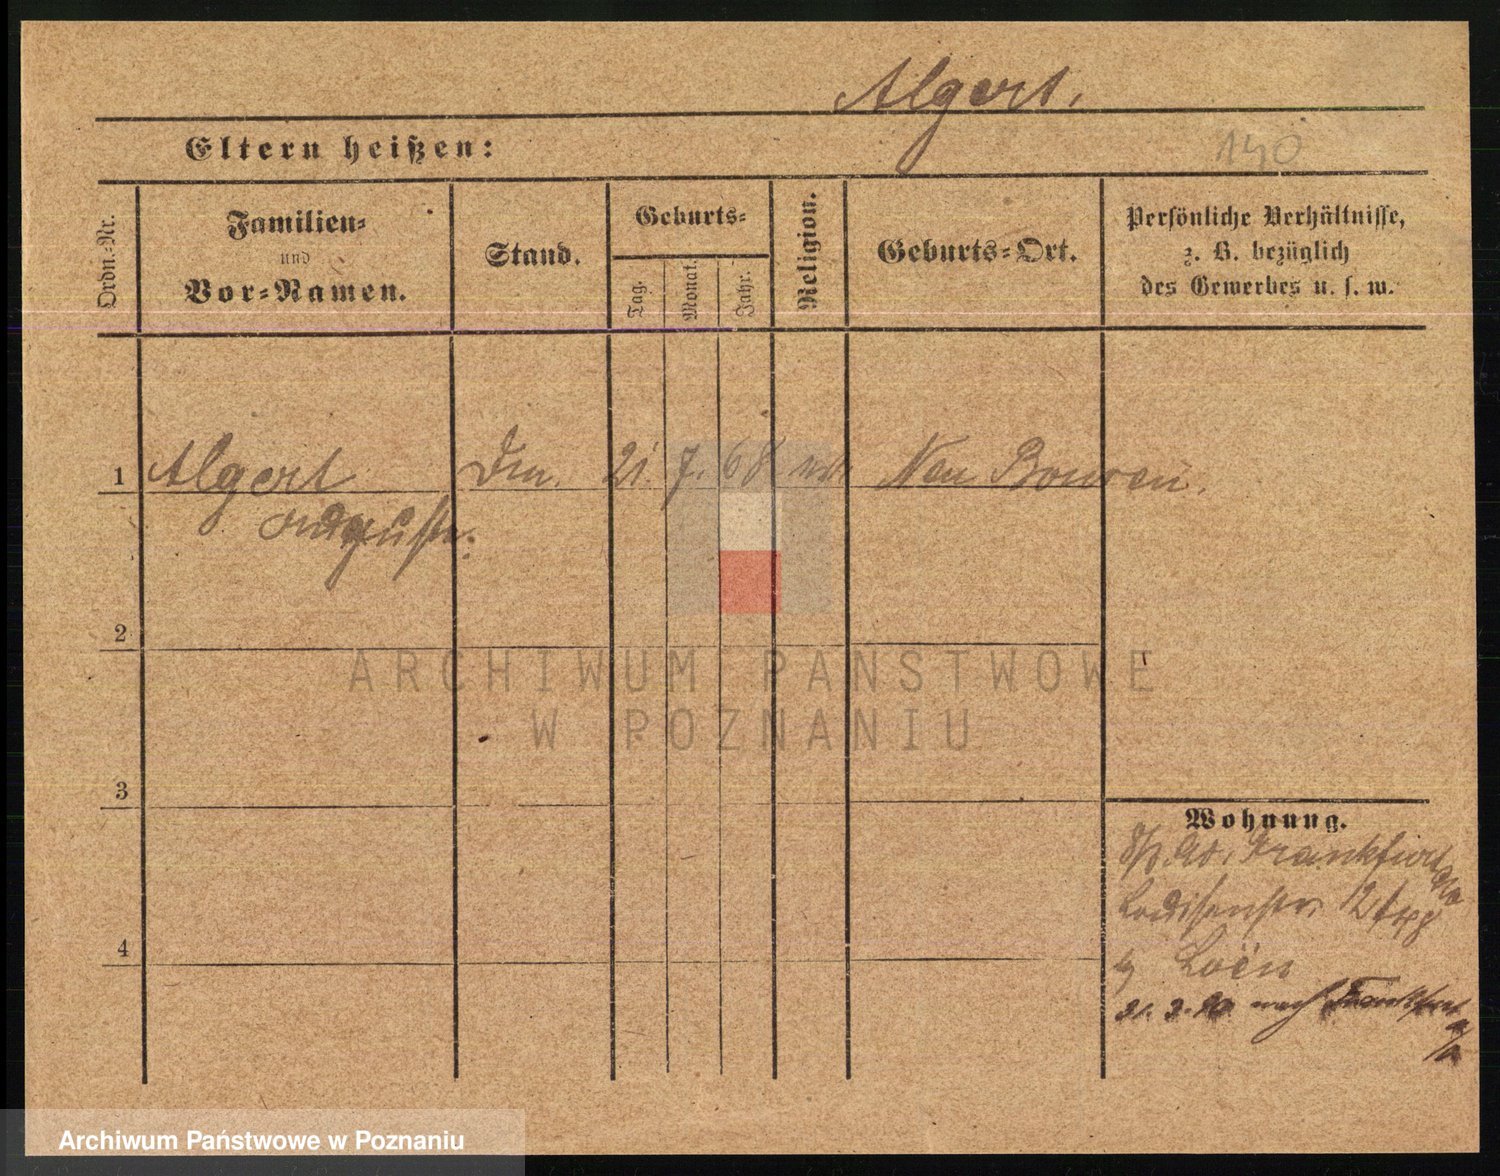 Algert.
Eltern heißen:
140
Ordn.-Nr.
Familien-
und
Vor-Namen.
Stand.
Geburts-
Tag.
Monat.
Jahr.
Religion.
Geburts-Ort.
Persönliche Verhältnisse,
z. B. bezüglich
des Gewerbes u. s. w.
1 Algert 21. 7. 68 Neu
Auguste.
2
ARCHIWUM PAŃSTWOWE
W POZNANIU
3
Wohnung.
Frankfurt
Louisenstr. 12
4
21. 3. 90 nach Frankfurt
Archiwum Państwowe w Poznaniu